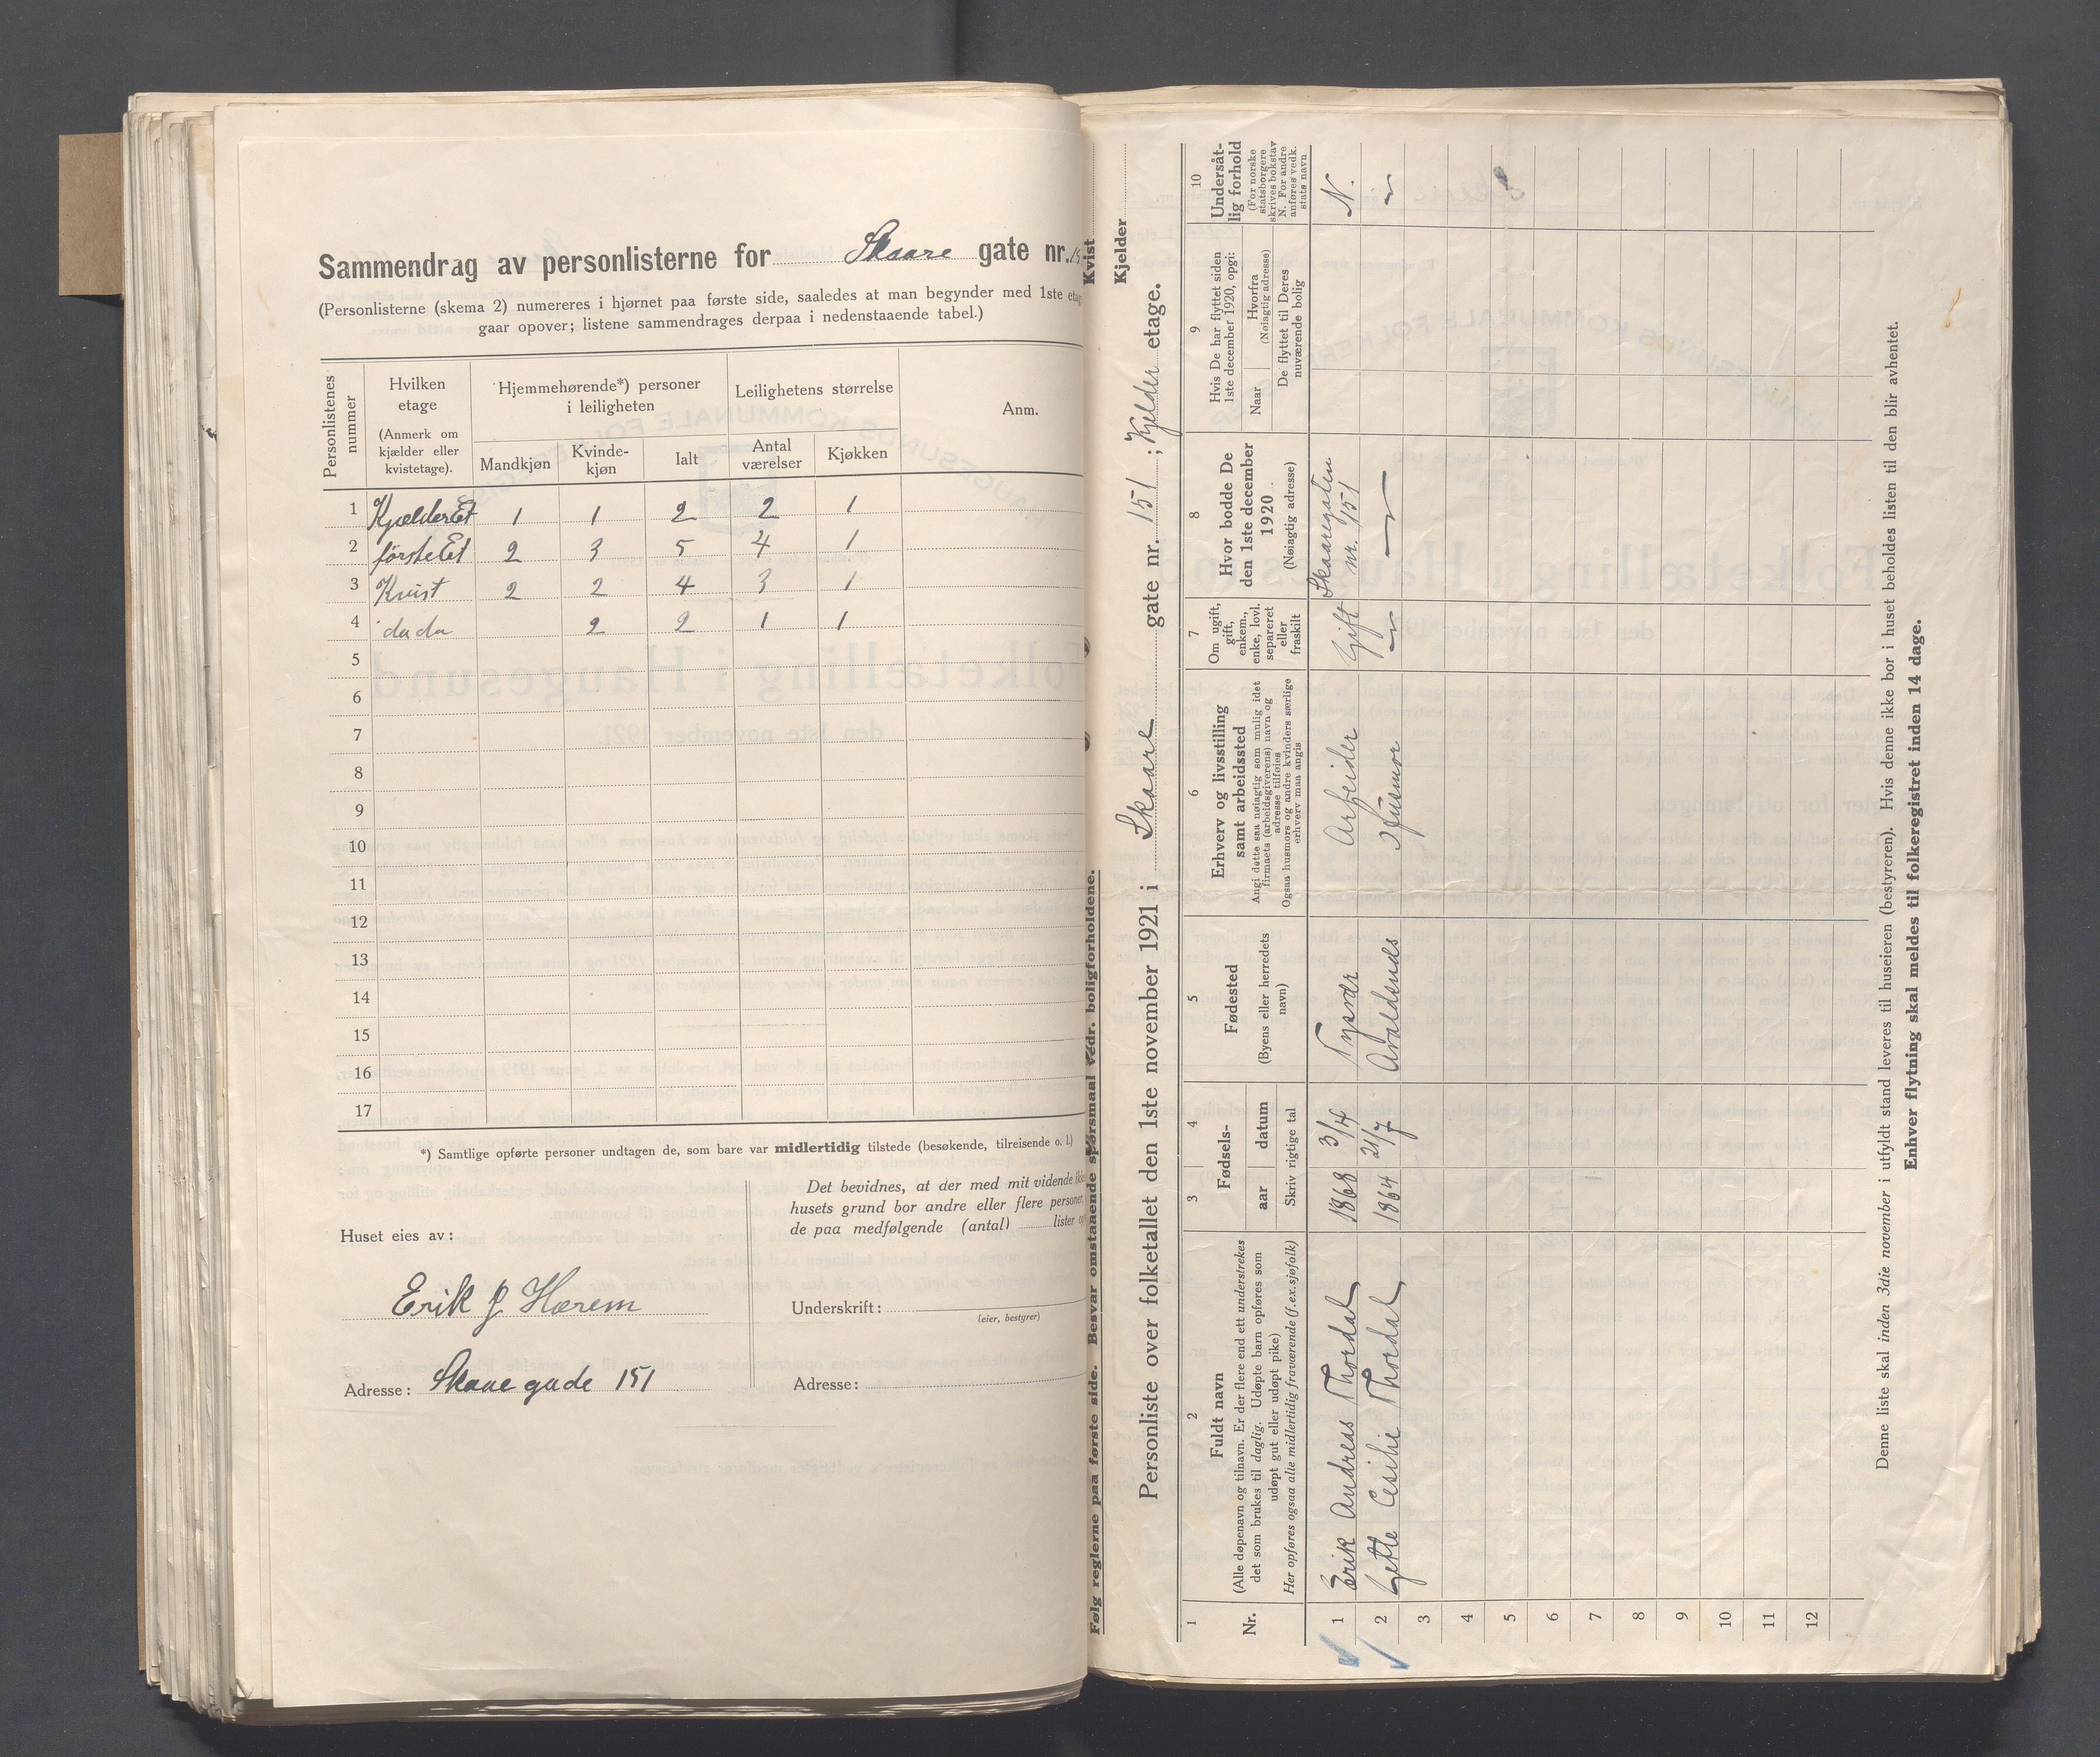 Sammendrag av personlisterne for Skaare gate nr.
(Personlisterne (skema 2) numereres i hjørnet paa første side, saaledes at man begynder med 1ste
gaar opover; listene sammendrages derpaa i nedenstaaende tabel.)
Personlistenes nummer
Hvilken etage
(Anmerk om kjælder eller kvistetage).
Hjemmehørende*) personer i leiligheten
Mandkjøn
Kvinde-kjøn
Ialt
Leilighetens størrelse
Antal værelser
Kjøkken
Anm.
1 KjælderEt 1 1 2 2 1
2 førsteEt 2 3 5 4 1
3 Kvist 2 2 4 3 1
4 da da 2 2 1 1
5
6
7
8
9
10
11
12
13
14
15
16
17
*) Samtlige opførte personer undtagen de, som bare var midlertidig tilstede (besøkende, tilreisende o. l.)
Huset eies av:
Erik J Hærem
Adresse: Skaare gade 151
Det bevidnes, at der med mit vidende
husets grund bor andre eller flere personer,
de paa medfølgende (antal) lister
Underskrift:
(eier, bestyrer)
Adresse:
Følg reglerne paa første side. Besvar omstaaende spørsmaal vedr. boligforholdene.
Kvist
Kjelder
Personliste over folketallet den 1ste november 1921 i Skaare gate nr. 151; Kjelder etage.
1
Nr.
2
Fuldt navn
(Alle døpenavn og tilnavn. Er der flere end ett understrekes
det som brukes til daglig. Udøpte barn opføres som
udøpt gut eller udøpt pike)
Her opføres ogsaa alle midlertidig fraværende (f.ex.sjøfolk)
3
4
Fødsels-
aar
datum
Skriv rigtige tal
5
Fødested
(Byens eller herredets navn)
6
Erhverv og livsstilling
samt arbeidssted
Angi dette saa nøiagtig som mulig idet
firmaets (arbeidsgiverens) navn og
adresse tilføies
Ogsaa husmors og andre kvinders særlige
erhverv maa angis
7
Om ugift,
gift,
enkem.,
enke, lovl.
separeret
eller
fraskilt
8
Hvor bodde De
den 1ste december
1920
(Nøiagtig adresse)
9
Hvis De har flyttet siden
1ste december 1920, opgi:
Naar
Hvorfra
(Nøiagtig adresse)
De flyttet til Deres
nuværende bolig
10
Undersåt-
lig forhold
(For norske
statsborgere
skrives bokstav
N. For andre
anføres vedk.
stats navn
1 Erik Andreas Thordal 1868 3/4 Tysvær Arbeider Gift Skaaregaten nr. 151 N.
2 Gjette Cesilie Thordal 1864 21/7 Avaldsnes Husmor
3
4
5
6
7
8
9
10
11
12
Denne liste skal inden 3die november i utfyldt stand leveres til huseieren (bestyreren). Hvis denne ikke bor i huset beholdes listen til den blir avhentet.
Enhver flytning skal meldes til folkeregistret inden 14 dage.